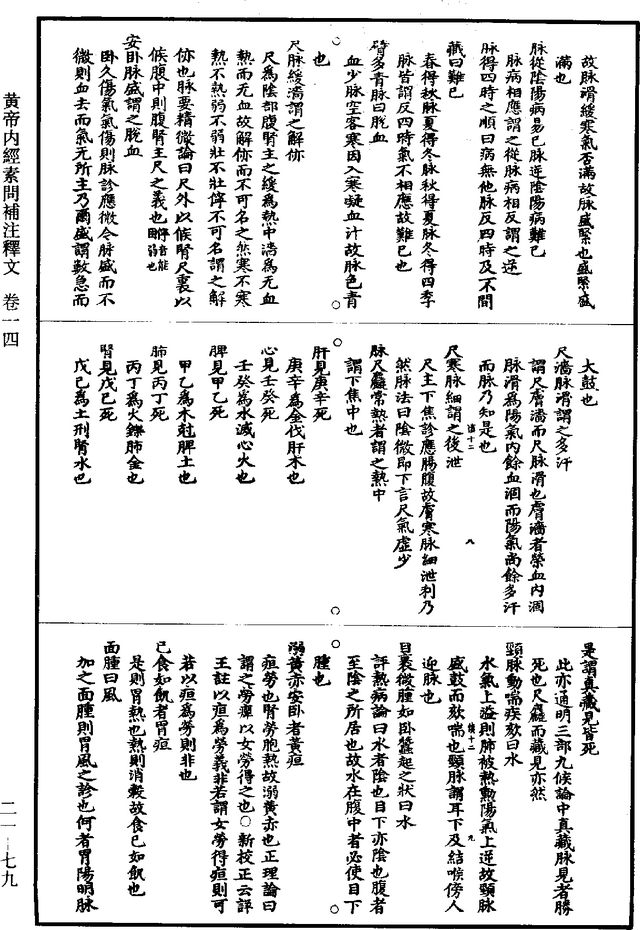 黄帝内經素問補注釋文　卷一四
二一—七九
故脉滑緩寒氣否滿故脉盛緊也盛緊盛
滿也
脉從陰陽病易已脉逆陰陽病難已
脉病相應謂之從脉病相反謂之逆
脉得四時之順曰病無他脉反四時及不間
藏曰難已
春得秋脉夏得冬脉秋得夏脉冬得四季
脉皆謂反四時氣不相應故難已也
臂多青脉曰脫血
血少脉空客寒因入寒凝血汁故脉色青
也
尺脉緩濇謂之解㑊
尺爲陰部腹腎主之緩爲熱中濇爲无血
熱而无血故解㑊而不可名之然寒不寒
熱不熱弱不弱壯不壯㑊不可名謂之解
㑊也脉要精微論曰尺外以候腎尺裏以
候腹中則腹腎主尺之義也
安卧脉盛謂之脫血
卧久傷氣氣傷則脉診應微今脉盛而不
微則血去而氣无所主乃爾盛謂數急而
大鼓也
尺濇脉滑謂之多汗
謂尺膚濇而尺脉滑也膚濇者榮血内涸
脉滑爲陽氣内餘血涸而陽氣尚餘多汗
而脉乃知是也
尺寒脉細謂之後泄
尺主下焦診應腸腹故膚寒脉細泄利乃
然脉法曰陰微即下言尺氣虛少
脉尺麤常熱者謂之熱中
謂下焦中也
肝見庚辛死
庚辛爲金伐肝木也
心見壬癸死
壬癸爲水滅心火也
脾見甲乙死
甲乙爲木尅脾土也
肺見丙丁死
丙丁爲火鑠肺金也
腎見戊己死
戊己爲土刑腎水也
是謂真藏見皆死
此亦通明三部九候論中真藏脉見者勝
死也尺麤而藏見亦然
頸脉動喘疾欬曰水
水氣上溢則肺被熱熏陽氣上逆故頸脉
盛鼓而欬喘也頸脉謂耳下及結喉傍人
迎脉也
目裹微腫如卧蠶起之狀曰水
評熱病論曰水者陰也目下亦陰也腹者
至陰之所居也故水在腹中者必使目下
腫也
溺黃赤安卧者黃疸
疸勞也腎勞胞熱故溺黃赤也正理論曰
謂之勞癉以女勞得之也○新校正云詳
王註以疸爲勞義非若謂女勞得疸則可
若以疸爲勞則非也
已食如飢者胃疸
是則胃熱也熱則消穀故食已如飢也
面腫曰風
加之面腫則胃風之診也何者胃陽明脉